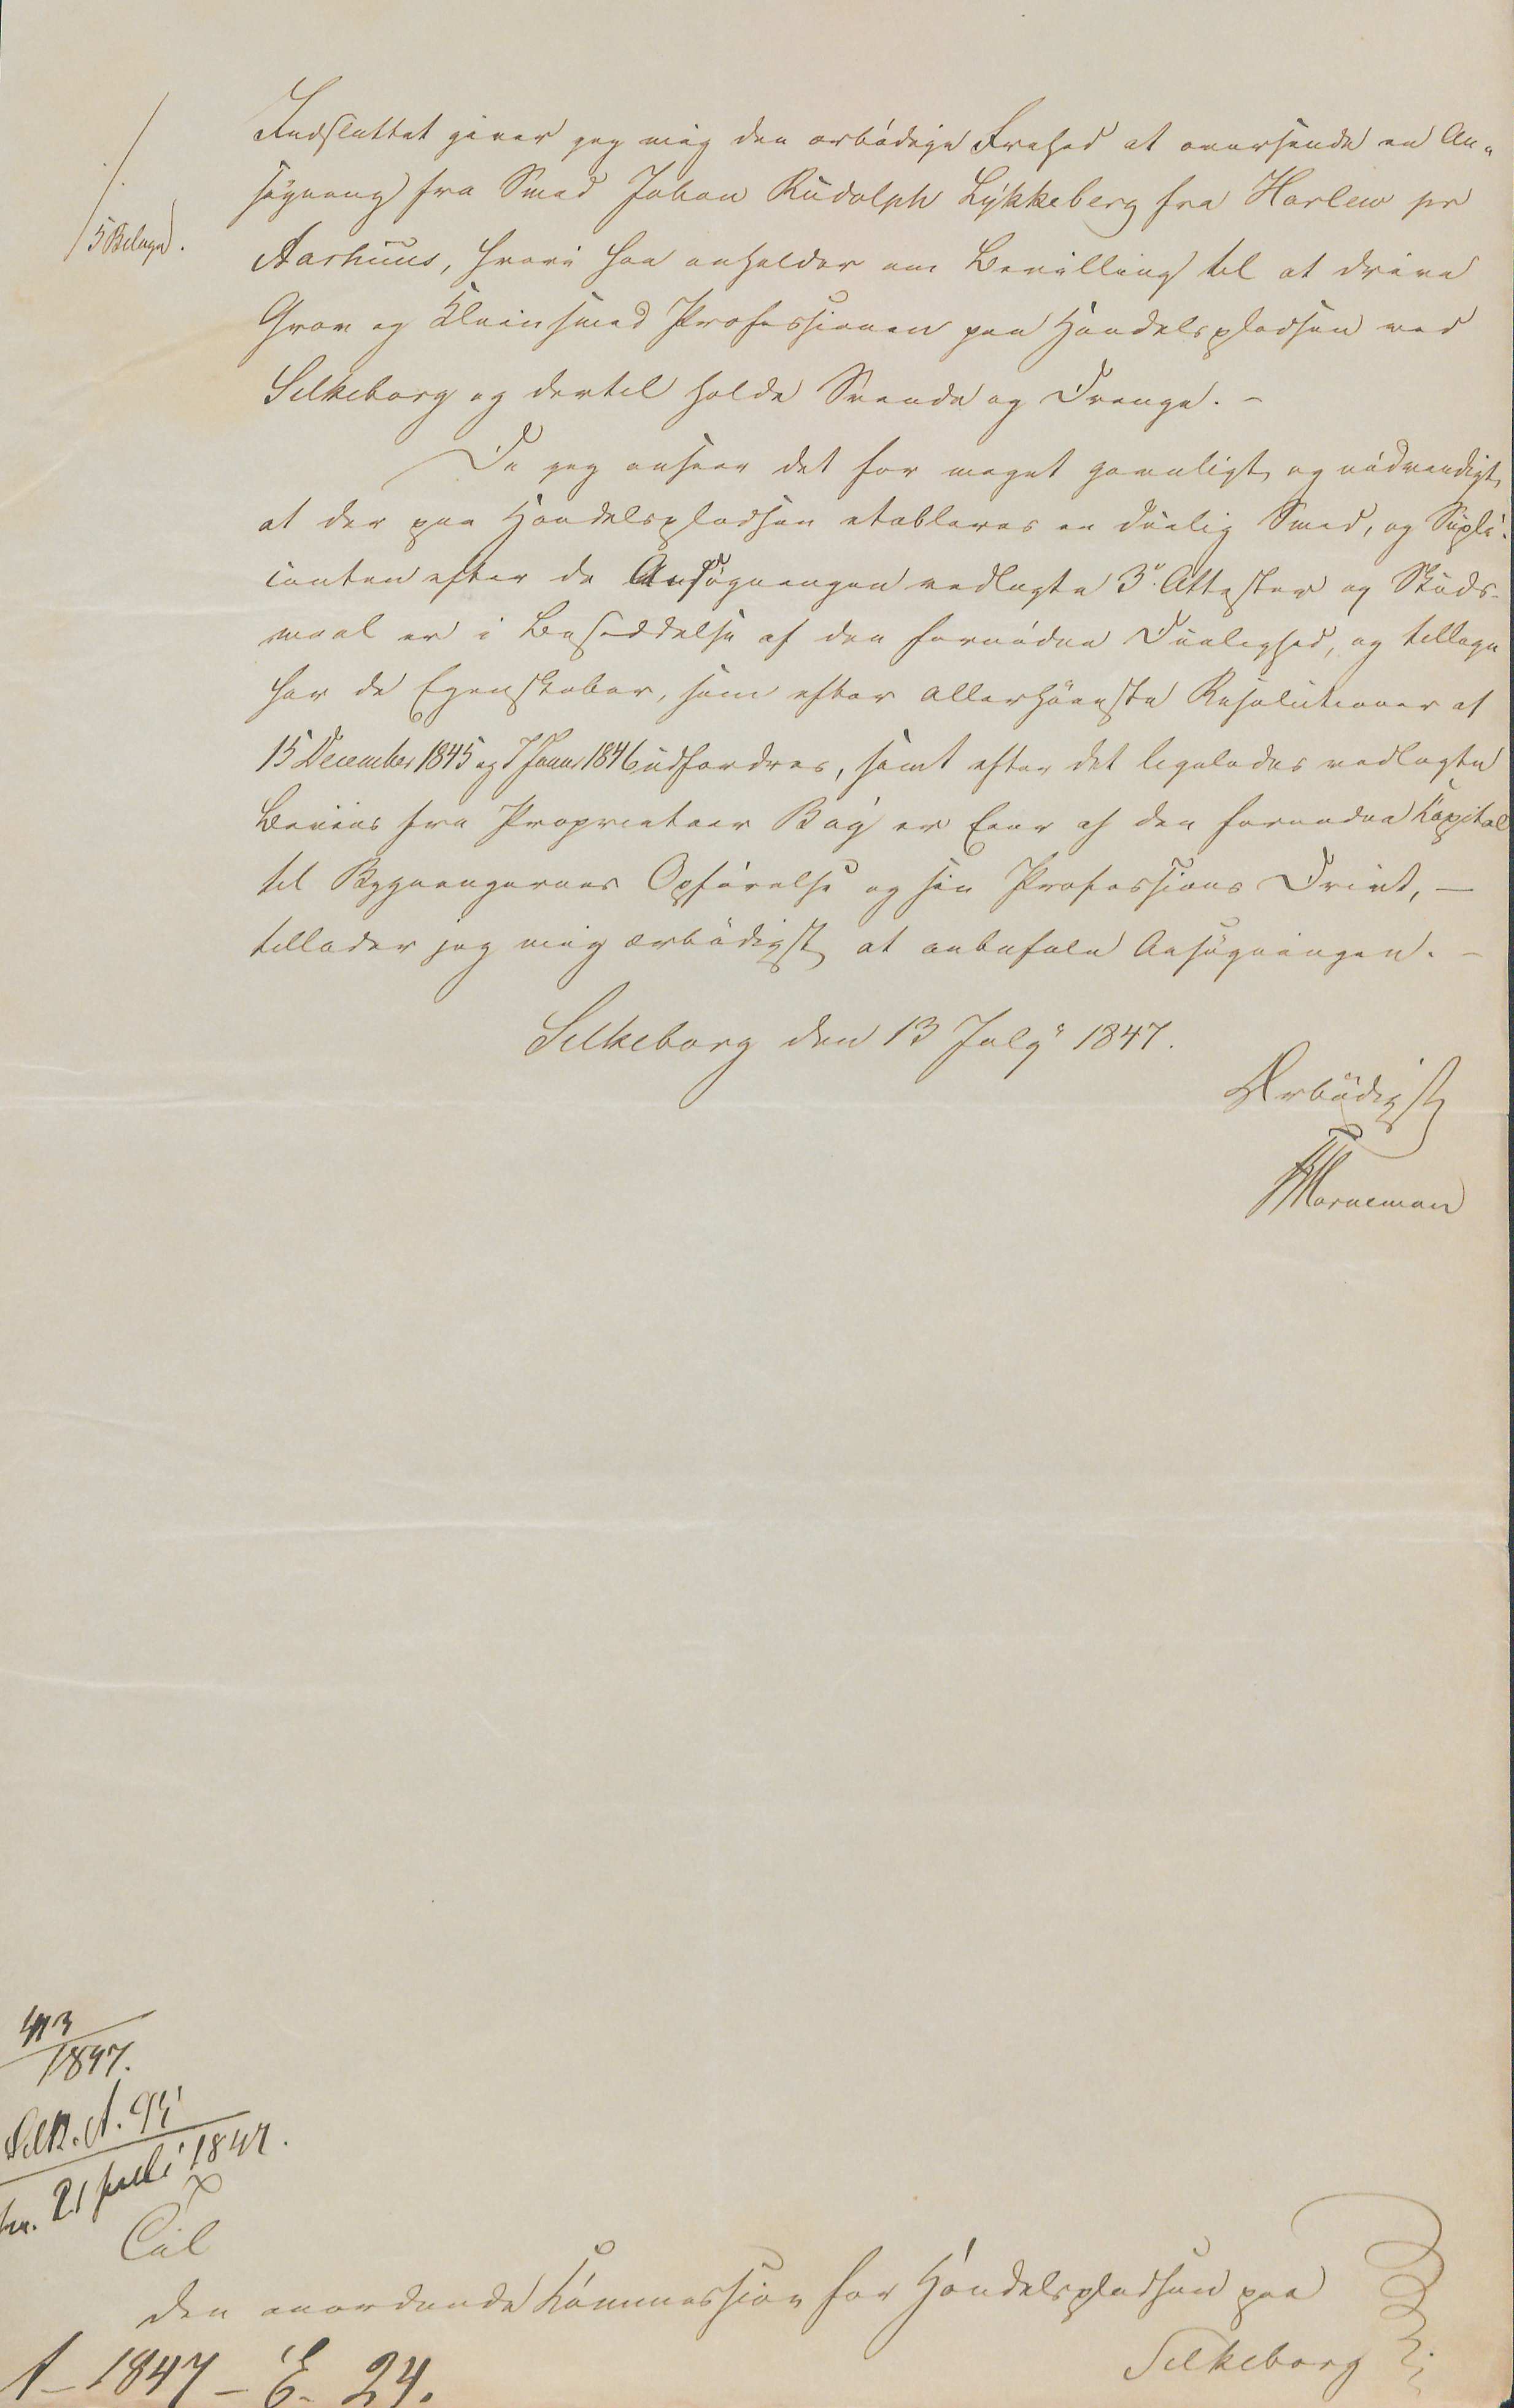 Indsluttet giver jeg mig den ærbødige Frihed at oversende en An-
søgning fra Smed Johan Rudolph Lykkeberg fra Harlew pr
5 Bilage.
Aarhuus, hvori han anholder om Bevilling til at drive
Grov og Kleinsmed Professionen paa Handelspladsen ved
Silkeborg og dertil holde Svende og Drenge. -
Da jeg anseer det for meget gavnligt og nødvendigt,
at der paa Handelspladsen etableres en duelig Smed, og Supli-
canten efter de Ansøgningen vedlagte 3de Attester og Skuds-
maal er i Besiddelse af den fornødne Duelighed, og tillige
har de Egenskaber, som efter allerhøieste Resolutioner af
15 December 1845 og 7 Januar 1846 udfordres, samt efter det ligeledes vedlagte
Beviis fra Proprietair Bay er Eier af den fornødne Kapital
til Bygningernes Opførelse og sin Professions Drivt, -
tillader jeg mig ærbødigst at anbefale Ansøgningen. -
Silkeborg den 13 July 1847.
Ærbødigst
Horneman
413
1847.
Silk. A. 95
21 Juli 1847.
Til
den anordnede Kommission for Handelspladsen paa
Silkeborg
A - 1847 - E - 24.